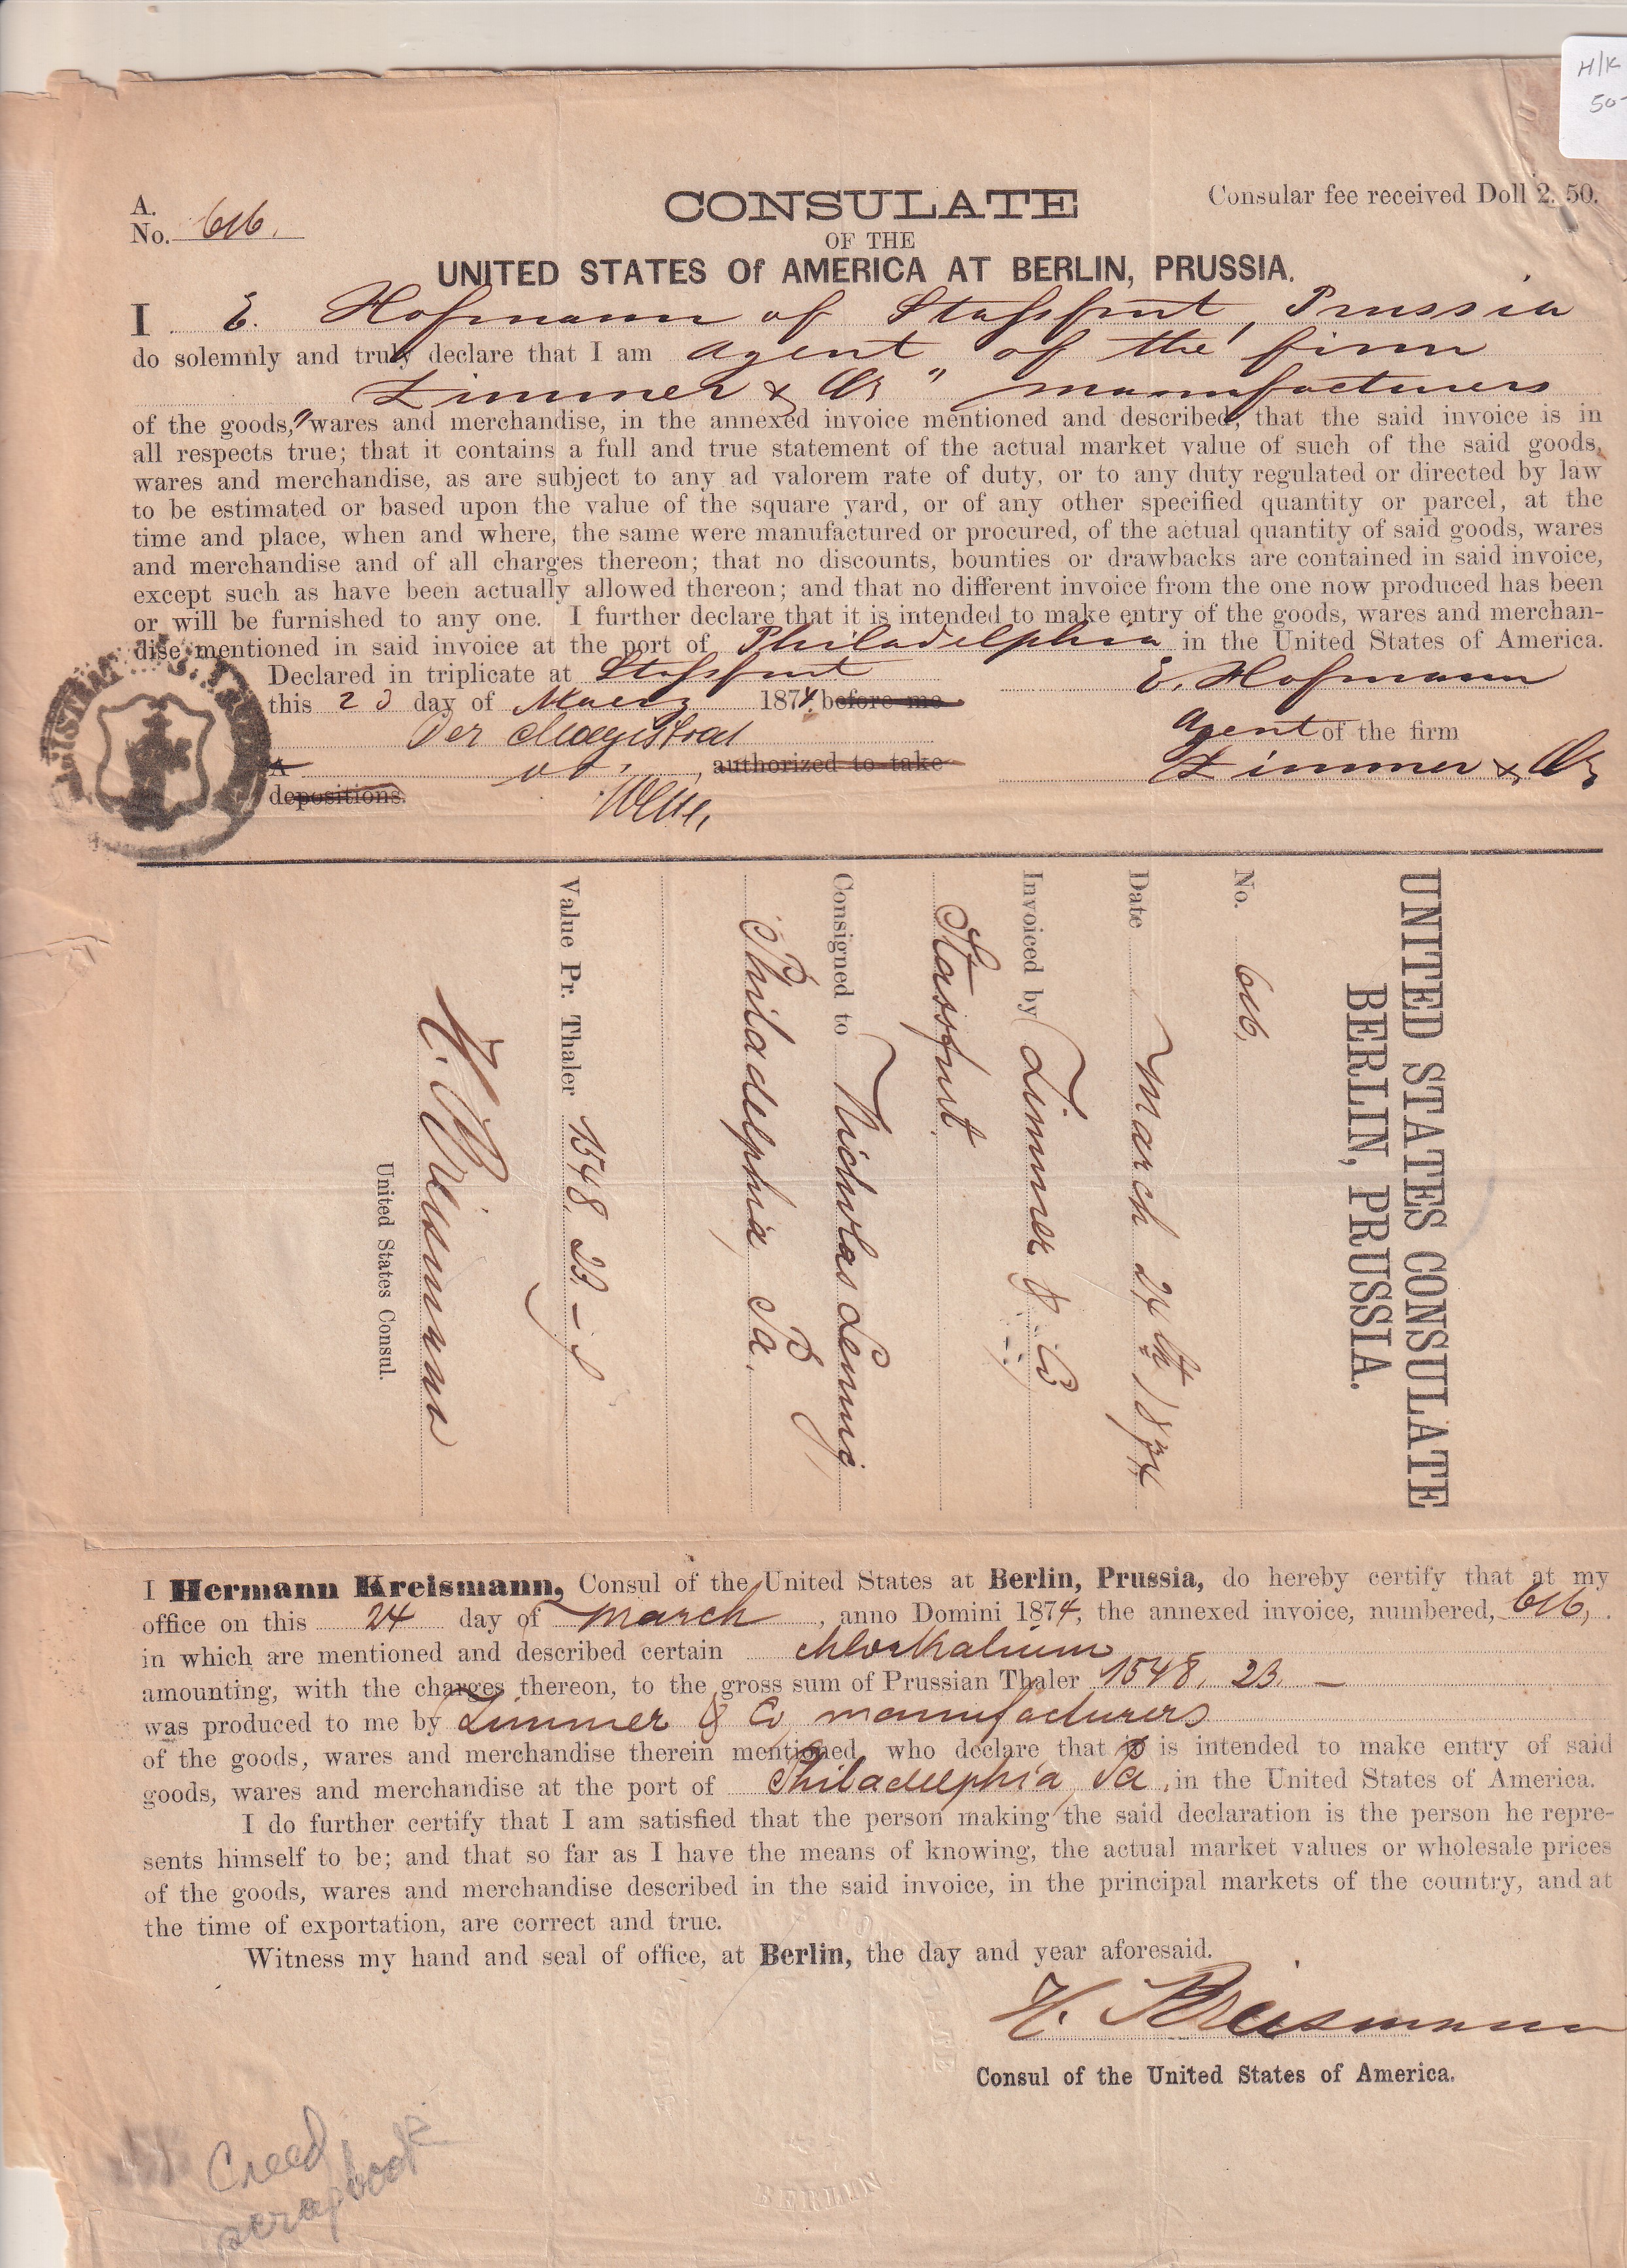 H/K
50-
A.
No. 616.
CONSULATE
Consular fee received Doll 2. 50.
OF THE
UNITED STATES Of AMERICA AT BERLIN, PRUSSIA.
I E. Hofmann of Stassfurt, Prussia
do solemnly and truly declare that I am agent of the firm
Zimmer & Co " manufacturers
of the goods, wares and merchandise, in the annexed invoice mentioned and described, that the said invoice is in
all respects true; that it contains a full and true statement of the actual market value of such of the said goods,
wares and merchandise, as are subject to any ad valorem rate of duty, or to any duty regulated or directed by law
to be estimated or based upon the value of the square yard, or of any other specified quantity or parcel, at the
time and place, when and where, the same were manufactured or procured, of the actual quantity of said goods, wares
and merchandise and of all charges thereon; that no discounts, bounties or drawbacks are contained in said invoice,
except such as have been actually allowed thereon; and that no different invoice from the one now produced has been
or will be furnished to any one. I further declare that it is intended to make entry of the goods, wares and merchan-
dise mentioned in said invoice at the port of Philadelphia in the United States of America.
Declared in triplicate at Stassfurt
E. Hofmann
this 23 day of Maerz 1874 before me
Der Magistrat
Agent of the firm
A authorized to take
Zimmer & Co
depositions.
UNITED STATES CONSULATE
BERLIN, PRUSSIA.
No. 616.
Date March 24th 1874.
Invoiced by Zimmer & Co
Stassfurt
Consigned to Nicholas Lennig,
Philadelphia, Pa.
Value Pr. Thaler 1548. 23. -
H. Kreismann
United States Consul.
I Hermann Kreismann, Consul of the United States at Berlin, Prussia, do hereby certify that at my
office on this 24 day of March, anno Domini 1874, the annexed invoice, numbered, 616,
in which are mentioned and described certain Chlorkalium
amounting, with the charges thereon, to the gross sum of Prussian Thaler 1548. 23. -
was produced to me by Zimmer & Co manufacturers
of the goods, wares and merchandise therein mentioned, who declare that it is intended to make entry of said
goods, wares and merchandise at the port of Philadelphia, Pa, in the United States of America.
I do further certify that I am satisfied that the person making the said declaration is the person he repre-
sents himself to be; and that so far as I have the means of knowing, the actual market values or wholesale prices
of the goods, wares and merchandise described in the said invoice, in the principal markets of the country, and at
the time of exportation, are correct and true.
Witness my hand and seal of office, at Berlin, the day and year aforesaid.
H. Kreismann
Consul of the United States of America.
Creed
scrapbook
BERLIN